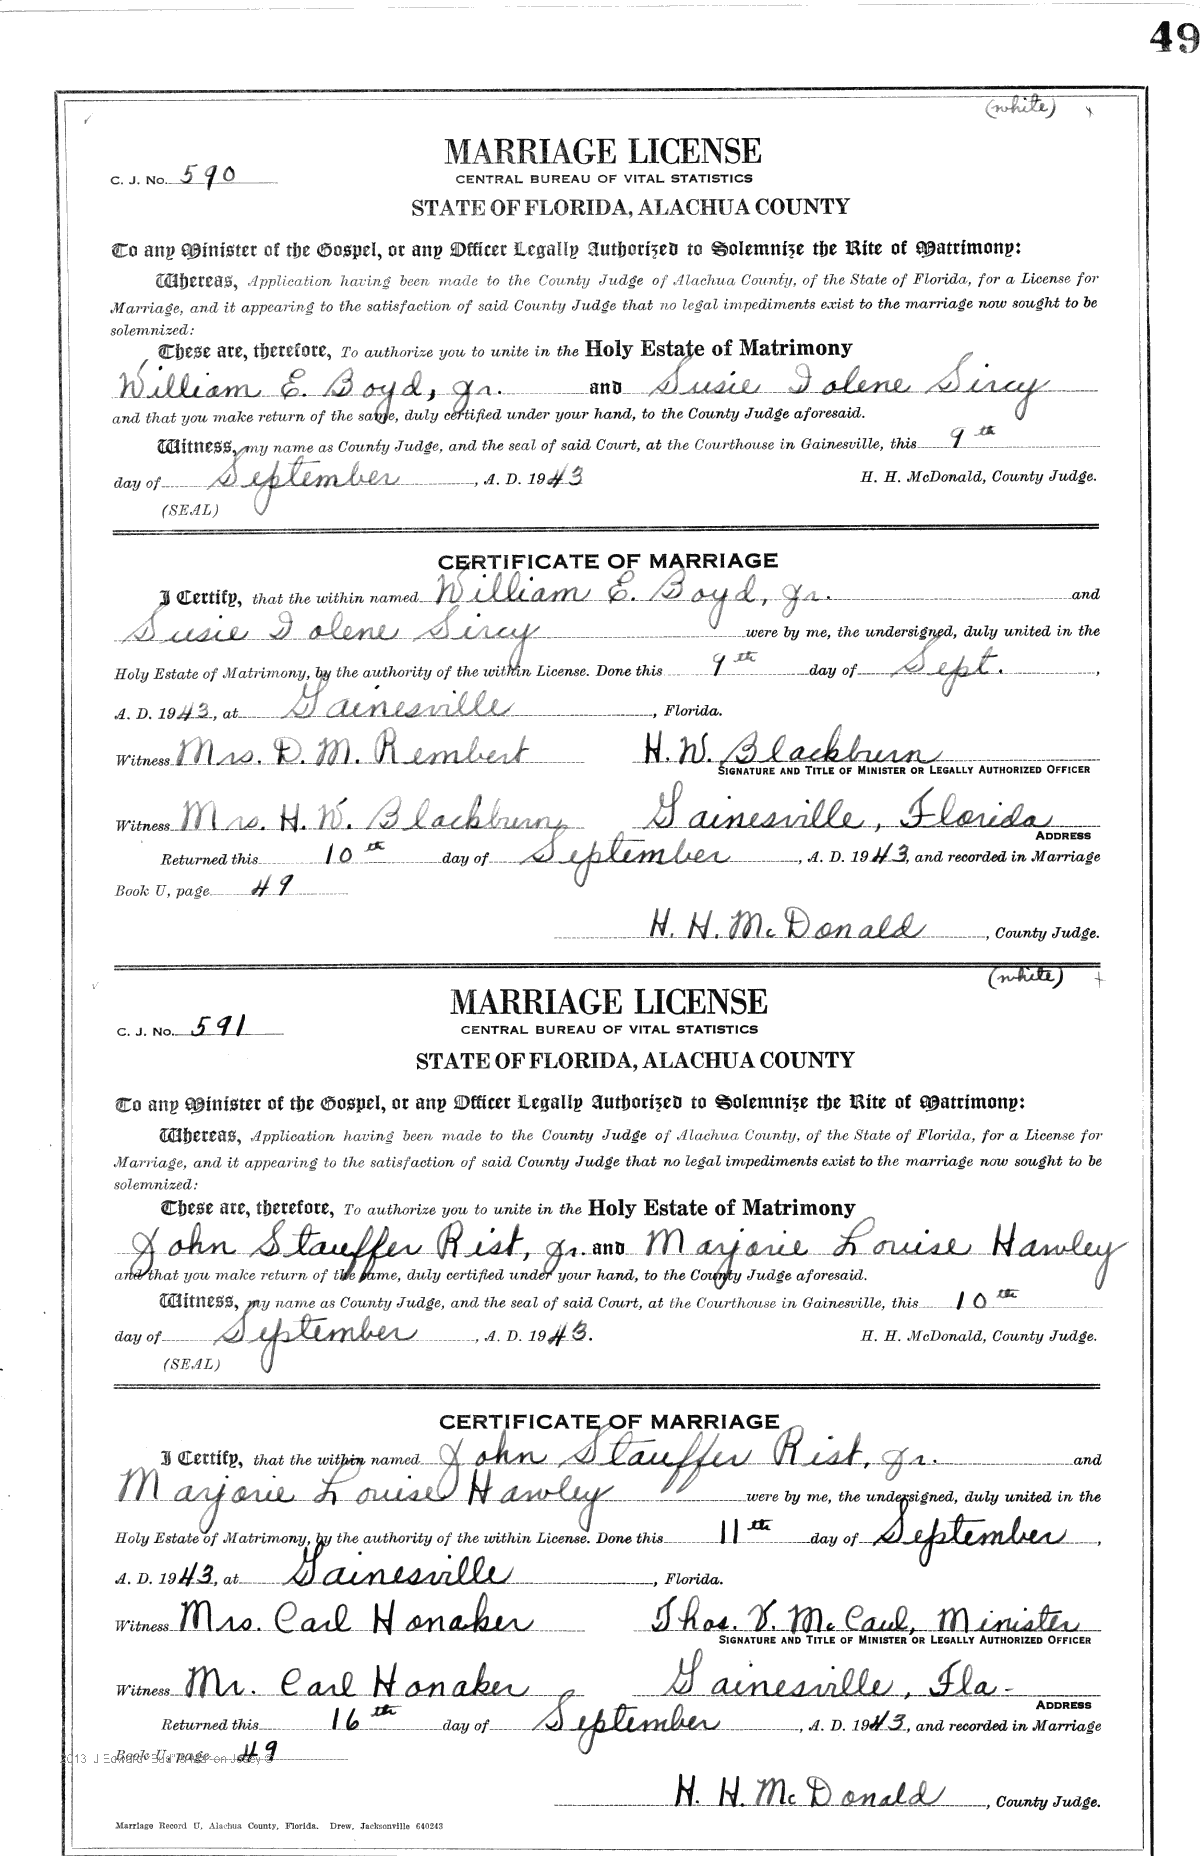 49
(white)
MARRIAGE LICENSE
C. J. No. 590
CENTRAL BUREAU OF VITAL STATISTICS
STATE OF FLORIDA, ALACHUA COUNTY
To any Minister of the Gospel, or any Officer Legally Authorized to Solemnize the Rite of Matrimony:
Whereas, Application having been made to the County Judge of Alachua County, of the State of Florida, for a License for
Marriage, and it appearing to the satisfaction of said County Judge that no legal impediments exist to the marriage now sought to be
solemnized:
These are, therefore, To authorize you to unite in the Holy Estate of Matrimony
William E. Boyd, Jr. and Susie Iolene Sircy
and that you make return of the same, duly certified under your hand, to the County Judge aforesaid.
Witness, my name as County Judge, and the seal of said Court, at the Courthouse in Gainesville, this 9th
day of September, A. D. 1943 H. H. McDonald, County Judge.
(SEAL)
CERTIFICATE OF MARRIAGE
I Certify, that the within named William E. Boyd, Jr. and
Susie Iolene Sircy were by me, the undersigned, duly united in the
Holy Estate of Matrimony, by the authority of the within License. Done this 9th day of Sept.,
A. D. 1943, at Gainesville, Florida.
Witness Mrs. D. M. Rembert H. W. Blackburn
SIGNATURE AND TITLE OF MINISTER OR LEGALLY AUTHORIZED OFFICER
Witness Mrs. H. W. Blackburn Gainesville, Florida
ADDRESS
Returned this 10th day of September, A. D. 1943, and recorded in Marriage
Book U, page 49
H. H. McDonald, County Judge.
(white)
MARRIAGE LICENSE
C. J. No. 591
CENTRAL BUREAU OF VITAL STATISTICS
STATE OF FLORIDA, ALACHUA COUNTY
To any Minister of the Gospel, or any Officer Legally Authorized to Solemnize the Rite of Matrimony:
Whereas, Application having been made to the County Judge of Alachua County, of the State of Florida, for a License for
Marriage, and it appearing to the satisfaction of said County Judge that no legal impediments exist to the marriage now sought to be
solemnized:
These are, therefore, To authorize you to unite in the Holy Estate of Matrimony
John Stauffer Rist, Jr. and Marjorie Louise Hawley
and that you make return of the same, duly certified under your hand, to the County Judge aforesaid.
Witness, my name as County Judge, and the seal of said Court, at the Courthouse in Gainesville, this 10th
day of September, A. D. 1943. H. H. McDonald, County Judge.
(SEAL)
CERTIFICATE OF MARRIAGE
I Certify, that the within named John Stauffer Rist, Jr. and
Marjorie Louise Hawley were by me, the undersigned, duly united in the
Holy Estate of Matrimony, by the authority of the within License. Done this 11th day of September,
A. D. 1943, at Gainesville, Florida.
Witness Mrs. Carl Honaker Thos. V. McCaul, Minister
SIGNATURE AND TITLE OF MINISTER OR LEGALLY AUTHORIZED OFFICER
Witness Mr. Carl Honaker Gainesville, Fla-
ADDRESS
Returned this 16th day of September, A. D. 1943, and recorded in Marriage
Book U, page 49
H. H. McDonald, County Judge.
Marriage Record U, Alachua County, Florida. Drew, Jacksonville 640243